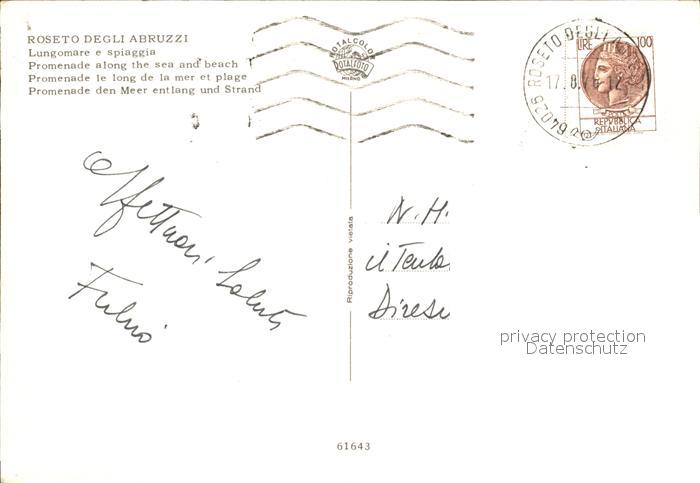 ROSETO DEGLI ABRUZZI
Lungomare e spiaggia
Promenade along the sea and beach
Promenade le long de la mer et plage
Promenade den Meer entlang und Strand
ROTALCOLOR
ROTALFOTO
MILANO
64026 ROSETO DEGLI
17.8.
LIRE 100
REPVBBLICA
ITALIANA
Affettuosi Saluti
Fulvio
Riproduzione vietata
N. H.
il
privacy protection
Datenschutz
61643